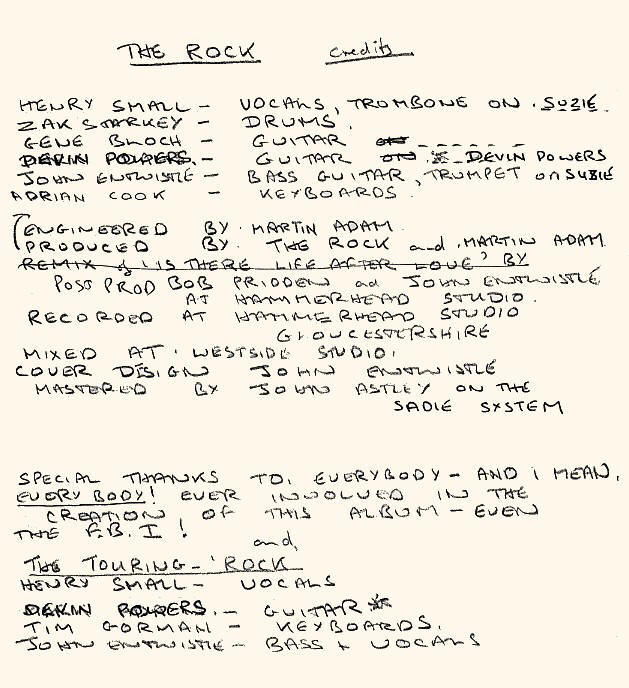 THE ROCK credits
HENRY SMALL - VOCALS, TROMBONE ON SUZIE.
ZAK STARKEY - DRUMS.
GENE BLOCH - GUITAR
DEVIN POWERS. - GUITAR ON DEVIN POWERS
JOHN ENTWISTLE - BASS GUITAR, TRUMPET on SUZIE
ADRIAN COOK - KEYBOARDS.
ENGINEERED BY. MARTIN ADAM
PRODUCED BY. THE ROCK and MARTIN ADAM.
REMIX of 'IS THERE LIFE AFTER LOVE' BY
POST PROD BOB PRIDDEN ad JOHN ENTWISTLE
AT HAMMERHEAD STUDIO.
RECORDED AT HAMMERHEAD STUDIO
GLOUCESTERSHIRE
MIXED AT. WESTSIDE STUDIO.
COVER DESIGN JOHN ENTWISTLE
MASTERED BY JOHN ASTLEY ON THE
SADIE SYSTEM
SPECIAL THANKS TO, EVERYBODY - AND I MEAN,
EVERYBODY! EVER INVOLVED IN THE
CREATION OF THIS ALBUM - EVEN
THE F.B.I!
and,
THE TOURING - 'ROCK
HENRY SMALL - VOCALS
DEVIN POWERS. - GUITAR
TIM GORMAN - KEYBOARDS.
JOHN ENTWISTLE - BASS + VOCALS